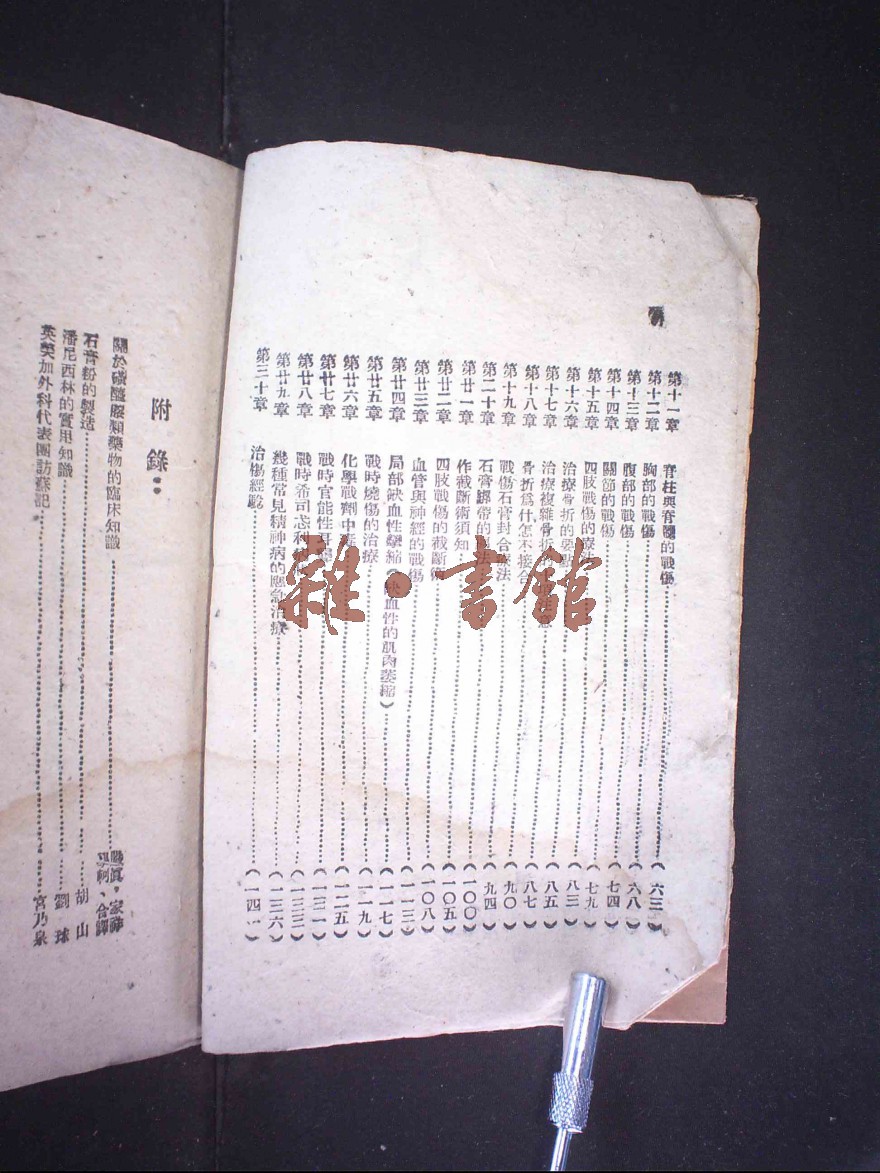 第十一章 脊柱與脊髓的戰傷……(六三)
第十二章 胸部的戰傷……(六八)
第十三章 腹部的戰傷……(七四)
第十四章 關節的戰傷……(七九)
第十五章 四肢戰傷的療法……(八三)
第十六章 治療骨折的要點……(八五)
第十七章 治療複雜骨折
第十八章 骨折爲什怎不接合
第十九章 戰傷石膏封合療法
第二十章 石膏繃帶的
第廿一章 作截斷術須知
第廿二章 四肢戰傷的截斷術
第廿三章 血管與神經的戰傷
第廿四章 局部缺血性攣縮(缺血性的肌肉萎縮)
第廿五章 戰時燒傷的治療
第廿六章 化學戰劑中毒
第廿七章 戰時官能性
第廿八章 戰時希司忒利
第廿九章 幾種常見精神病的應急治療……(一三六)
第三十章 治傷經驗……(一四一)
(八七)
(九〇)
(九四)
(一〇〇)
(一〇五)
(一〇八)
(一一三)
(一一七)
(一一九)
(一二五)
(一三一)
(一三三)
雜·書館
附錄：
關於磺醯胺類藥物的臨床知識……合譯
石膏粉的製造……胡山
潘尼西林的實用知識……劉球
英美加外科代表團訪蘇記……宮乃泉